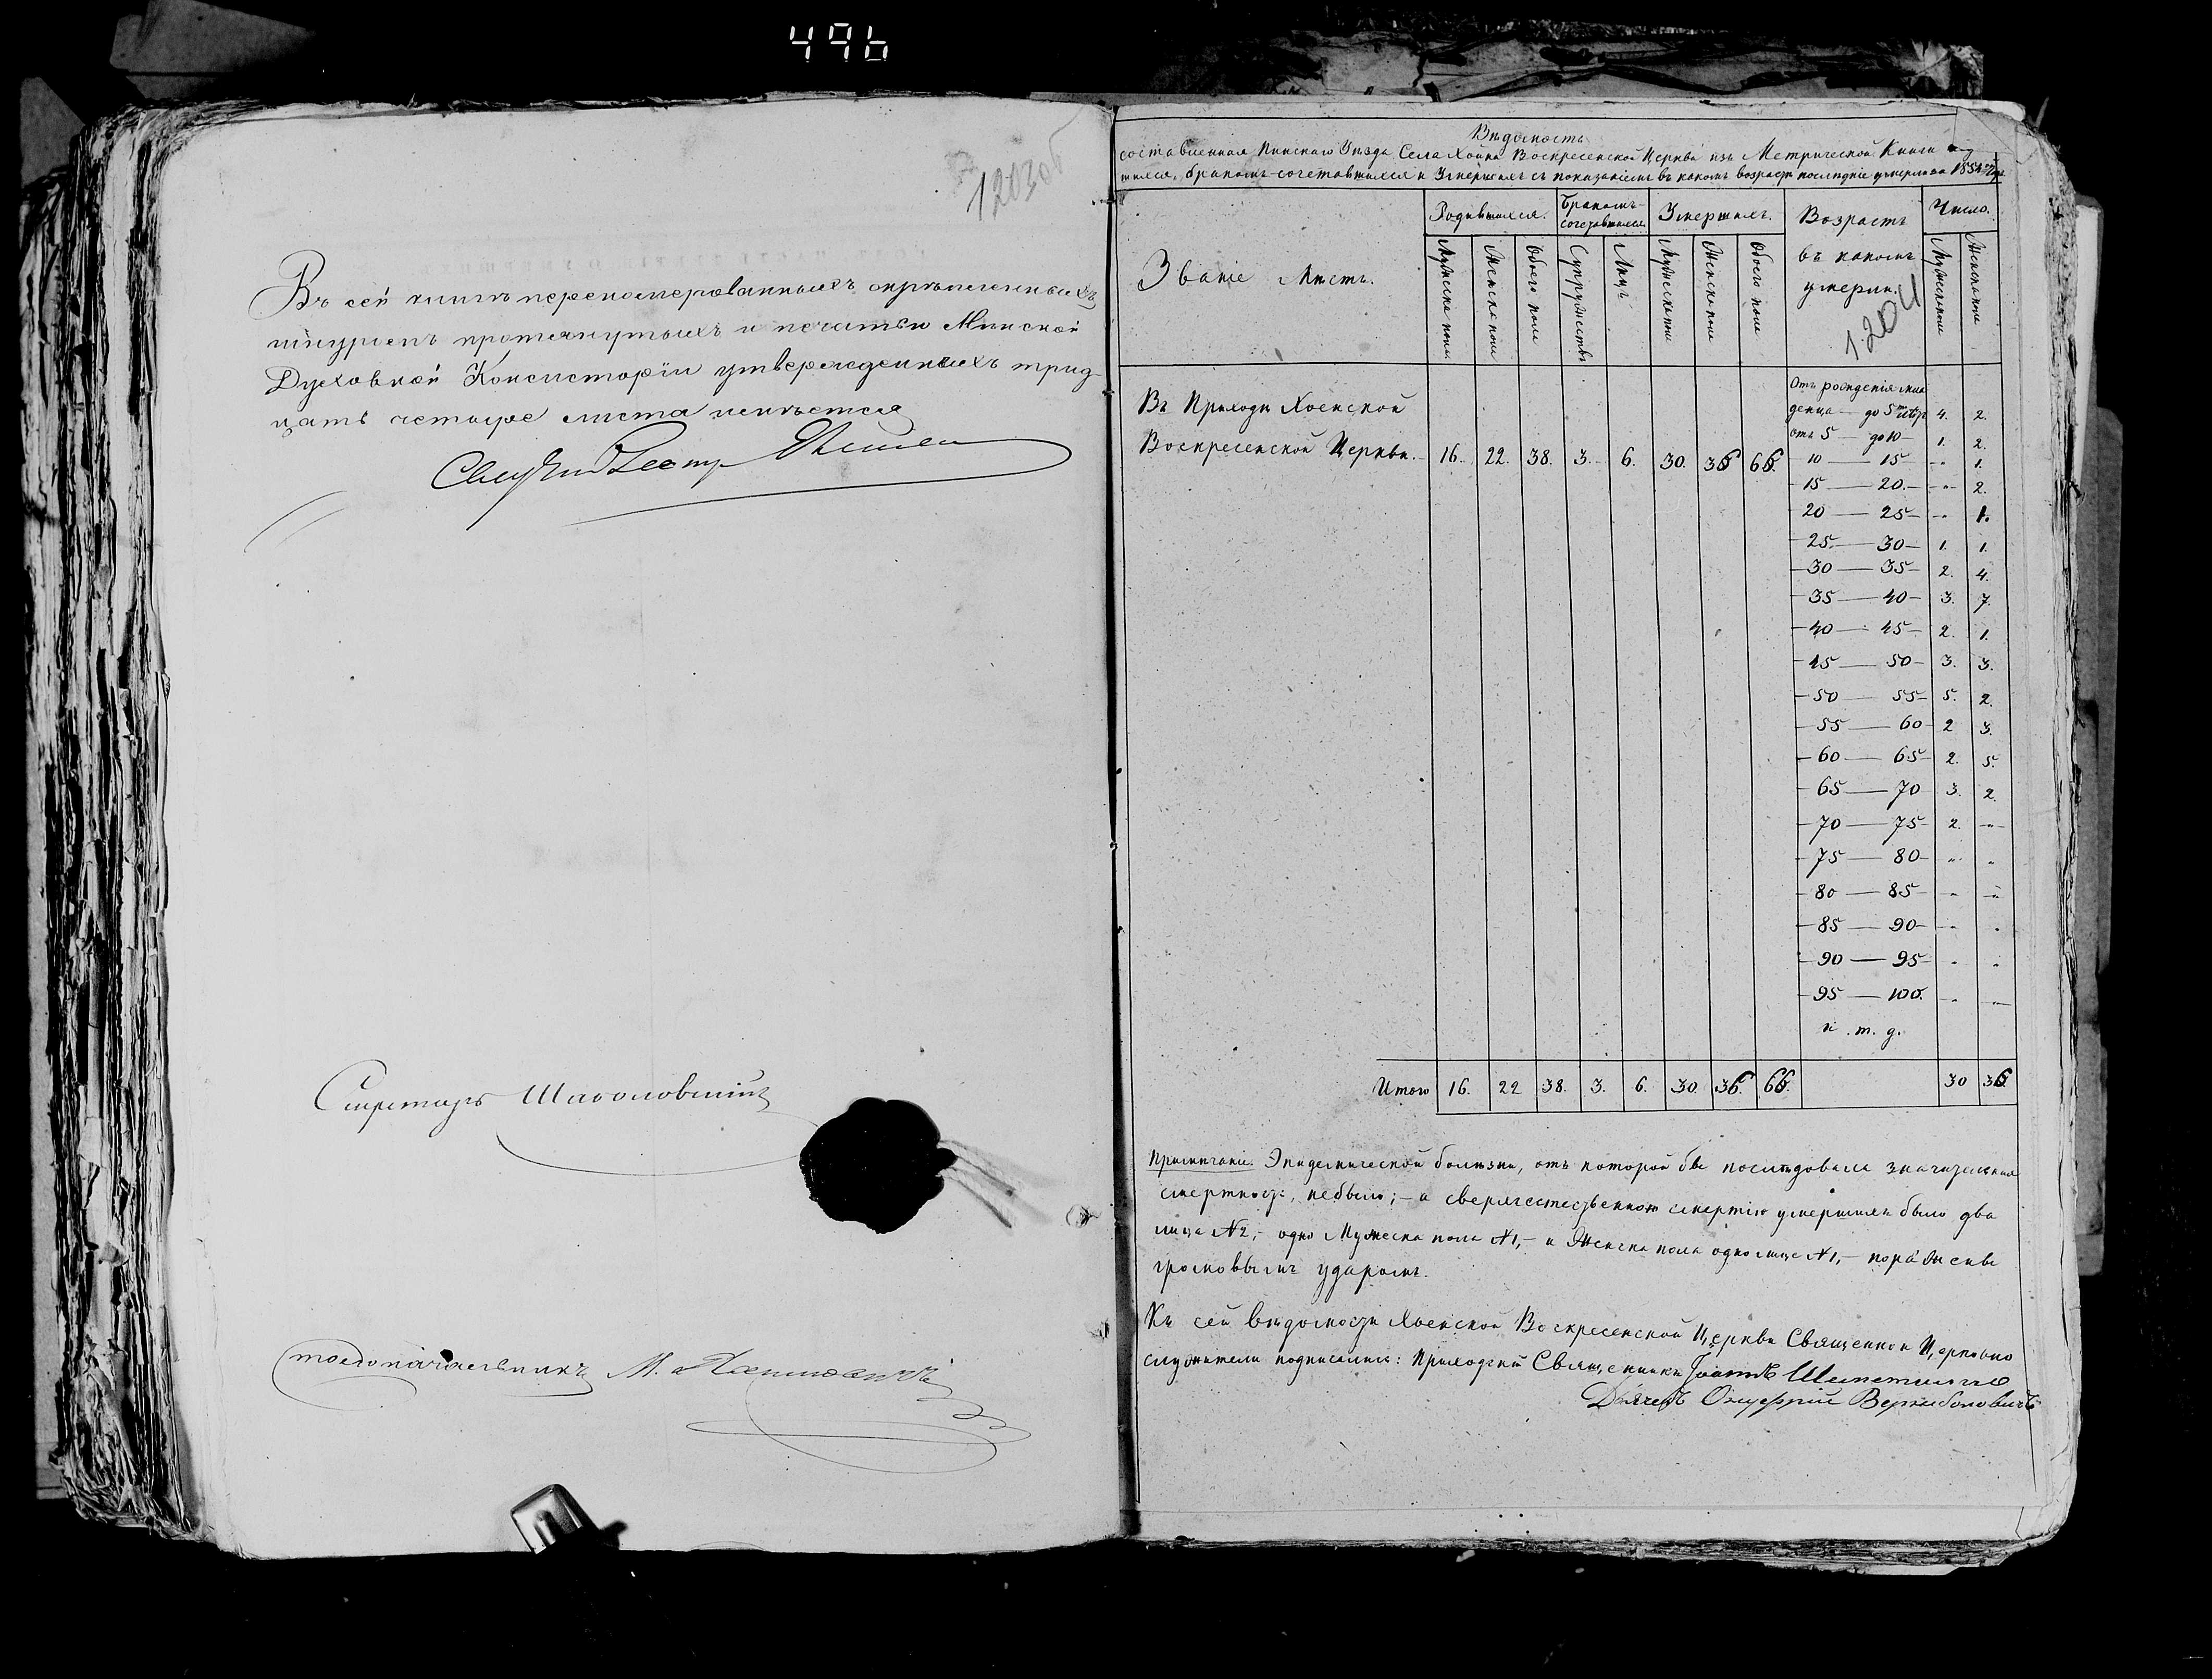 496
1203об
Въ сей книгѣ перенумерованныхъ скрѣпленныхъ
шнуромъ протянутыхъ и печатью Минской
Духовной Консисторіи утвержденныхъ трид-
цать четыре листа имѣется
Секретарь
Столоначальникъ М.
Вѣдомость
составленная Пинскаго Уѣзда Села Хойна Воскресенской Церкви изъ Метрической Книги о род
шихся, бракомъ-сочетавшихся и Умершихъ съ показаніемъ въ какомъ возрастѣ послѣдніе умерли за
Званіе Мѣстъ.
Родившихся.
Бракомъ-
сочетавшихся.
Умершихъ.
Возрастъ
въ какомъ
умерли.
Число.
Мужеска пола.
Женска пола
Обоего пола
Супружествъ
Лицъ
Мужеска пола
Женска пола
Обоего пола
Мужеска пола
Женска пола
1204
Въ Приходѣ Хоенской
Воскресенской Церкви. 16. 22. 38. 3. 6. 30. 36 66.
Отъ рожденія мла
денца до 5 4. 2.
отъ 5 — до 10 — 1. 2.
10 — 15 — " 1.
15 — 20. — " 2.
20 — 25 — " 1.
25 — 30 — 1. 1.
30 — 35 — 2. 4.
35 — 40 — 3. 7.
40 — 45 — 2. 1.
45 — 50 — 3. 3.
50 — 55 — 5. 2.
55 — 60 — 2 3.
60 — 65 — 2. 5.
65 — 70 3. 2.
70 — 75 — 2. "
75 — 80 — " "
80 — 85 — " "
85 — 90 — " "
90 — 95 — " "
95 — 100. " "
и. т. д.
Итого 16. 22 38. 3. 6. 30. 36. 66. 30 36
Примѣчаніе. Эпидемической болѣзни, отъ которой бы послѣдовала значительная
смертность, небыло; — а сверхъестественною смертію умершихъ было два
лица №2, — одно Мужеска пола №1, — и Женска пола одно лице №1, — поражены
громовымъ ударомъ.
Къ сей вѣдомости Хоенской Воскресенской Церкви Священно и Церковно
служители подписались: Приходскій Священникъ Іоаннъ
Дьячекъ Онуфрій